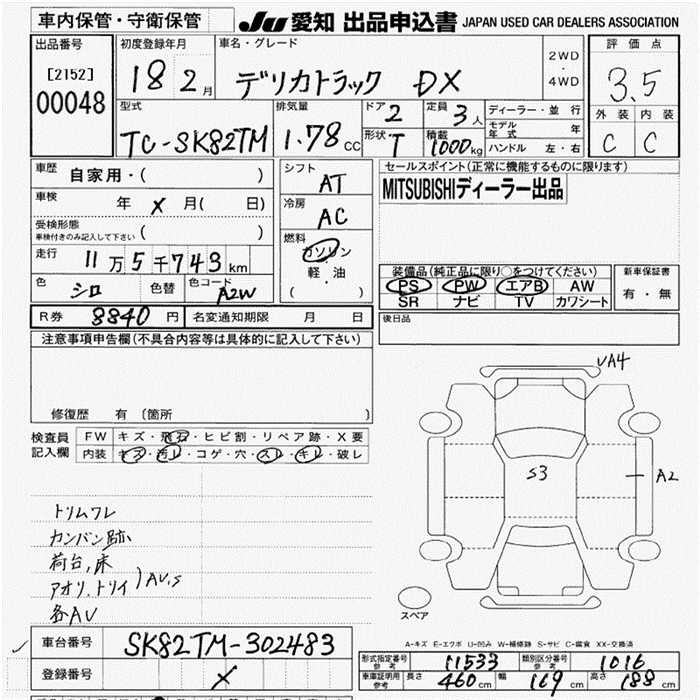 車内保管・守衛保管
JU 愛知 出品申込書 JAPAN USED CAR DEALERS ASSOCIATION
出品番号
[2152]
00048
初度登録年月
18 2月
車名・グレード
デリカトラック DX
2WD
・
4WD
評価点
3.5
外装 内装
C C
型式
TC-SK82TM
排気量
1.78 CC
ドア 2
形状 T
定員 3人
積載 1000kg
ディーラー・並行
モデル年式 年
ハンドル 左・右
車歴 自家用・( )
車検 年 × 月( 日)
受検形態
車検付きのみ記入して下さい ( )
走行 11万5千743km
色 シロ 色替 色コード A2W
シフト
AT
冷房
AC
燃料
ガソリン
軽・油
( )
セールスポイント(正常に機能するものに限ります)
MITSUBISHIディーラー出品
装備品(純正品に限り○をつけてください)
PS PW エアB AW
SR ナビ TV カワシート
新車保証書
有・無
R券 8840円 名変通知期限 月 日
後日品
注意事項申告欄(不具合内容等は具体的に記入して下さい)
修復歴 有 〔箇所 〕
検査員記入欄
FW キズ・飛石・ヒビ割・リペア跡・X要
内装 キズ・汚レ・コゲ・穴・スレ・キレ・破レ
トリムワレ
カンバン跡
荷台,床
アオリ,トリイ)AU,S
各AU
UA4
S3
A2
スペア
A-キズ E-エクボ U-凹み W-補修跡 S-サビ C-腐食 XX-交換済
車台番号 SK82TM-302483
登録番号 ×
形式指定番号 参考 11533 類別区分番号 参考 1016
車庫証明用 参考 長さ 460cm 幅 169cm 高さ 188cm